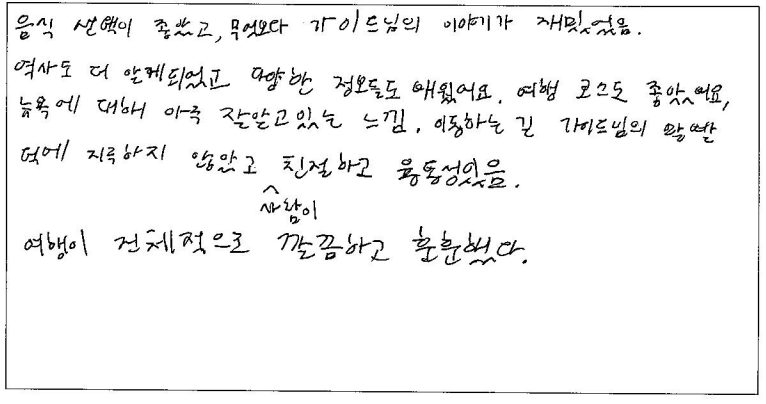 음식 선택이 좋았고, 무엇보다 가이드님의 이야기가 재밌었음.
역사도 더 알게되었고 다양한 정보들도 배웠어요. 여행 코스도 좋았어요,
뉴욕에 대해 아주 잘알고있는 느낌. 이동하는 길 가이드님의 말빨
덕에 지루하지 않았고 친절하고 융통성있음.
사람이
여행이 전체적으로 깔끔하고 훈훈했다.